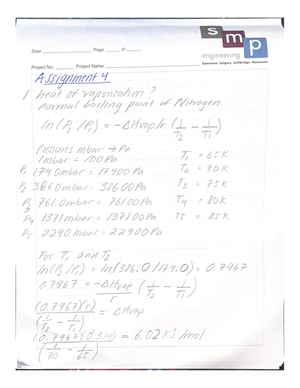 smp
engineering
Edmonton Calgary Lethbridge Vancouver
Date Page of
Project No.: Project Name
Assignment 4
1. heat of vaporization?
normal boiling point of Nitrogen
ln(P₂/P₁) = -ΔHvap/r (1/T₂ - 1/T₁)
Pressures mbar → Pa
1mbar = 100Pa T₁ = 65K
P₁ 174.0mbar = 17400Pa T₂ = 70K
P₂ 386.0mbar = 38600Pa T₃ = 75K
P₃ 761.0mbar = 76100Pa T₄ = 80K
P₄ 1371mbar = 137100Pa T5 = 85K
P₅ 2290mbar = 229000Pa
For T₁ and T₂
ln(P₂/P₁) = ln(386.0/174.0) = 0.7967
0.7967 = -ΔHvap/r (1/T₂ - 1/T₁)
(0.7967)(r)/(1/T₂ - 1/T₁) = ΔHvap
(0.7967)(8.314)/(1/70 - 1/65) = 6.02KJ/mol